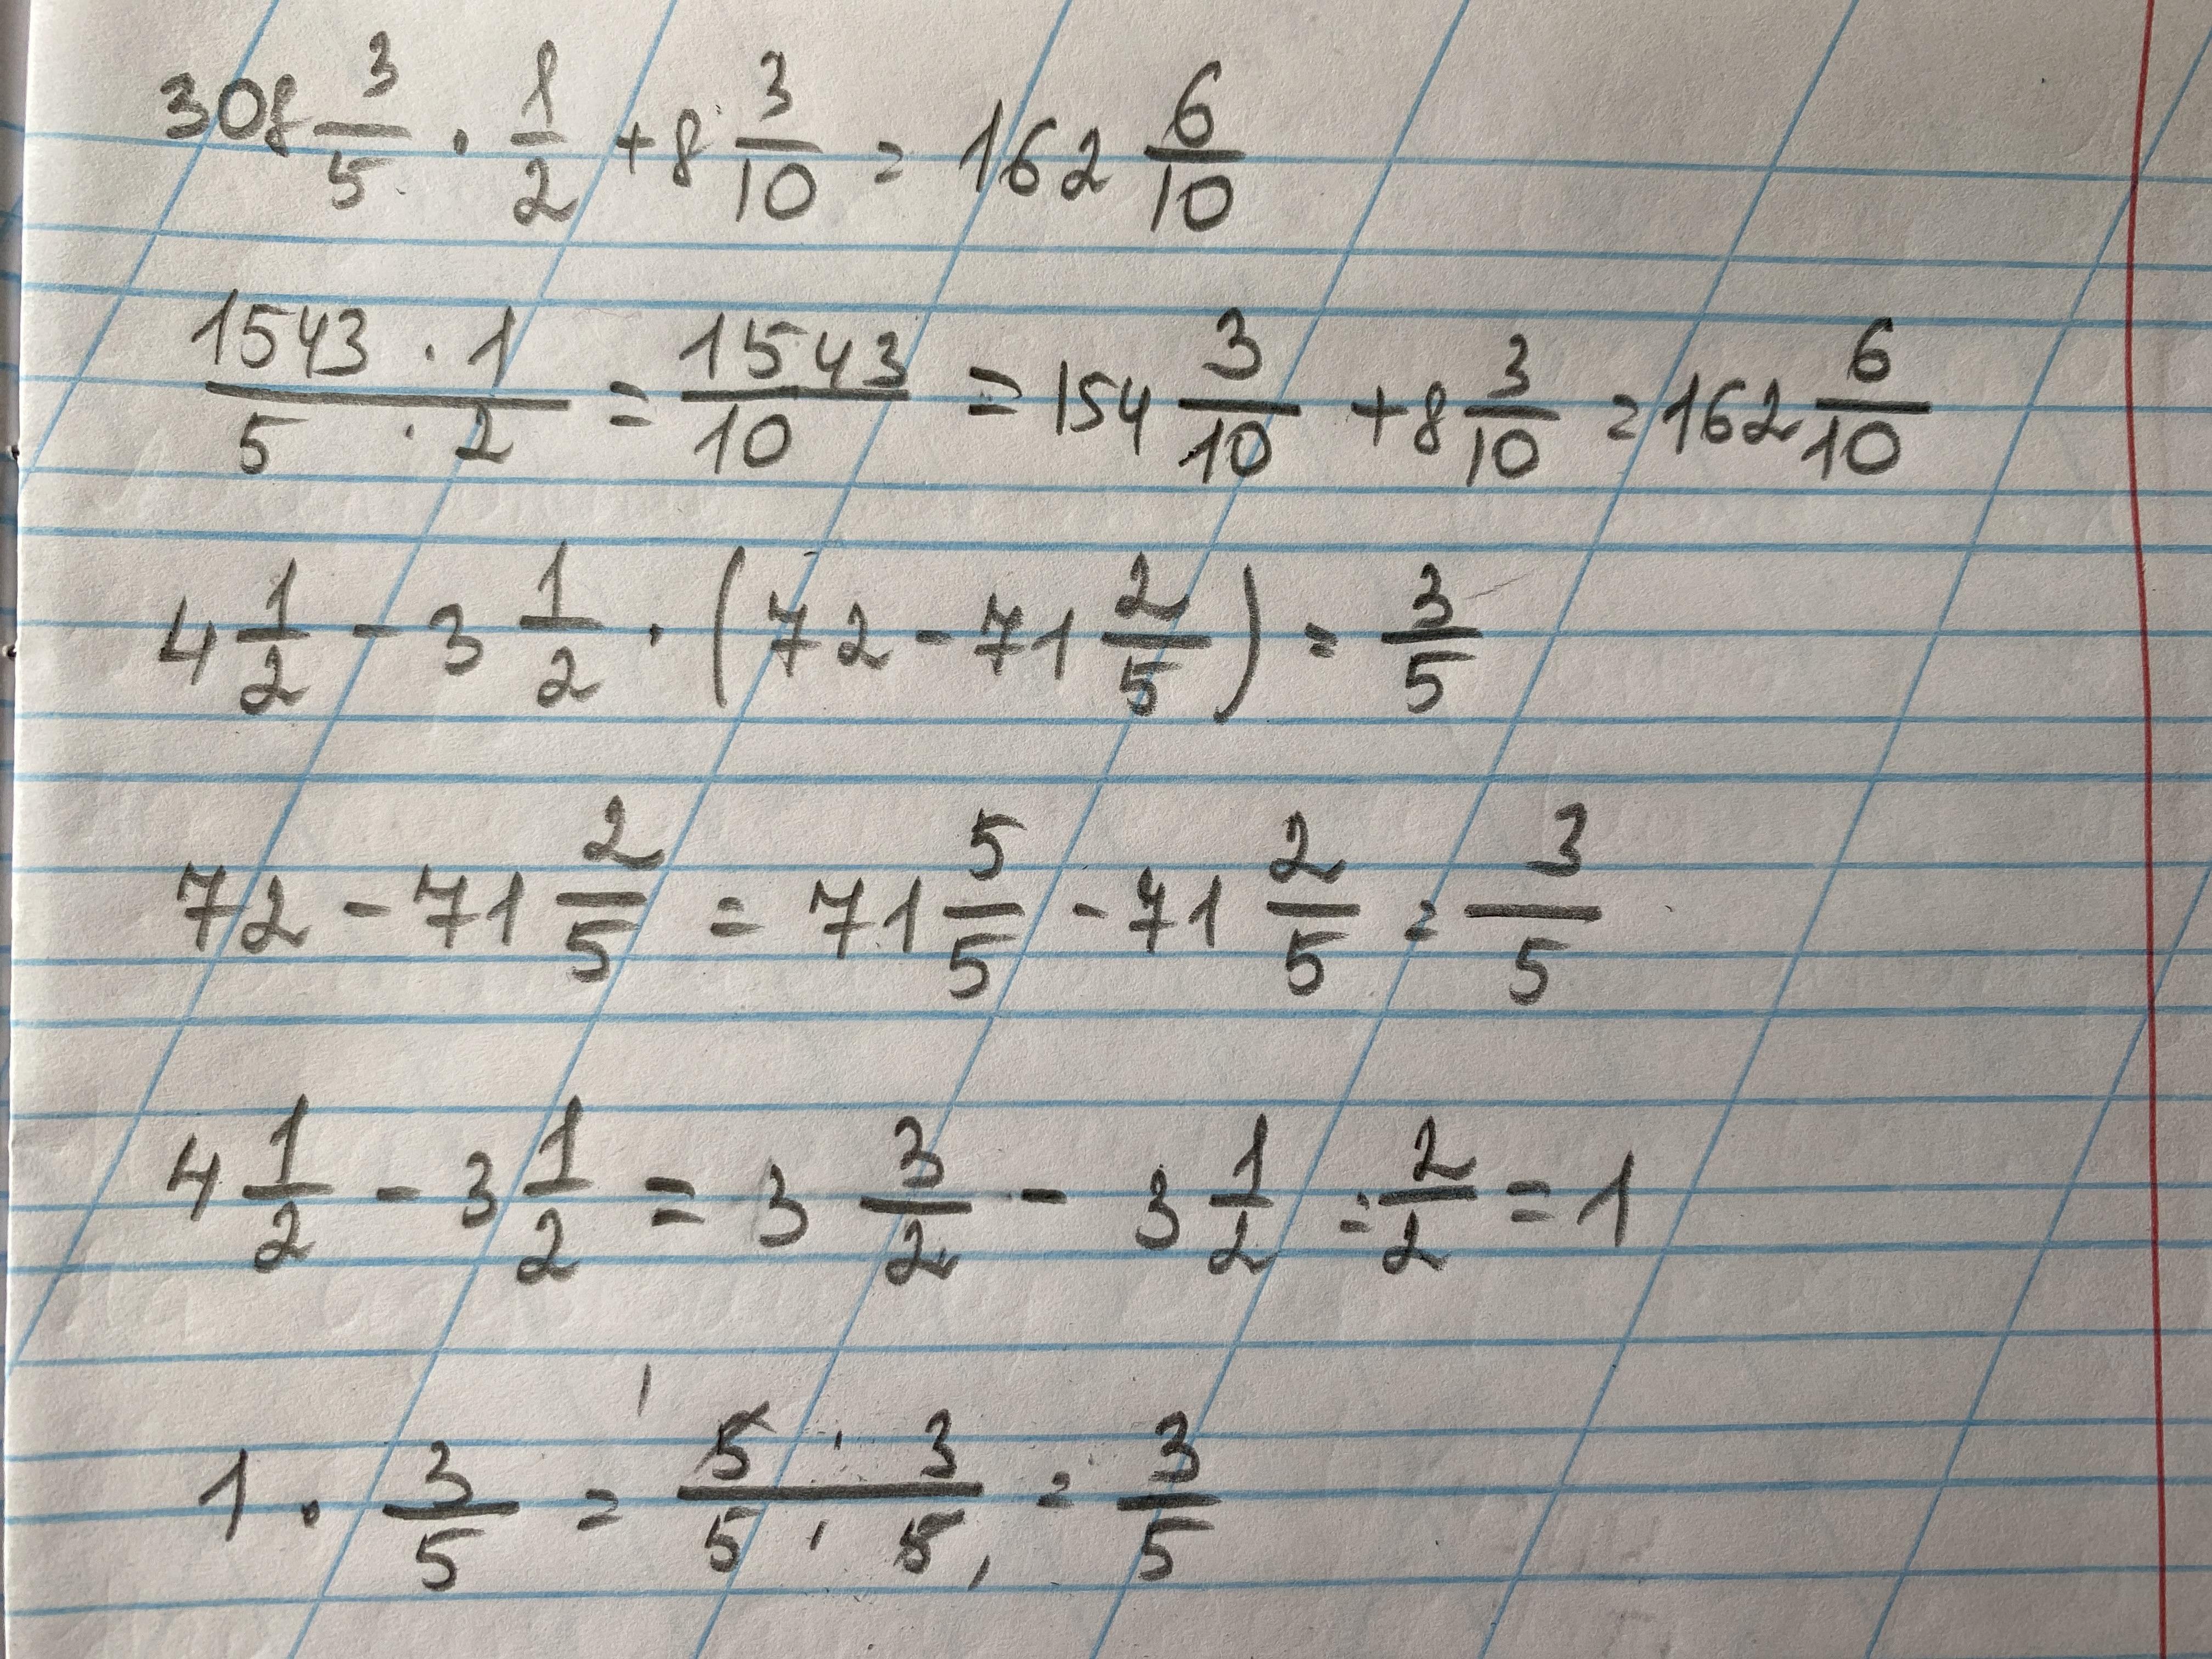 308 3/5 · 1/2 + 8 3/10 = 162 6/10
1543 · 1 / 5 · 2 = 1543/10 = 154 3/10 + 8 3/10 = 162 6/10
4 1/2 - 3 1/2 · (72 - 71 2/5) = 3/5
72 - 71 2/5 = 71 5/5 - 71 2/5 = 3/5
4 1/2 - 3 1/2 = 3 3/2 - 3 1/2 = 2/2 = 1
1 · 3/5 = 5 · 3 / 5 · 5 = 3/5